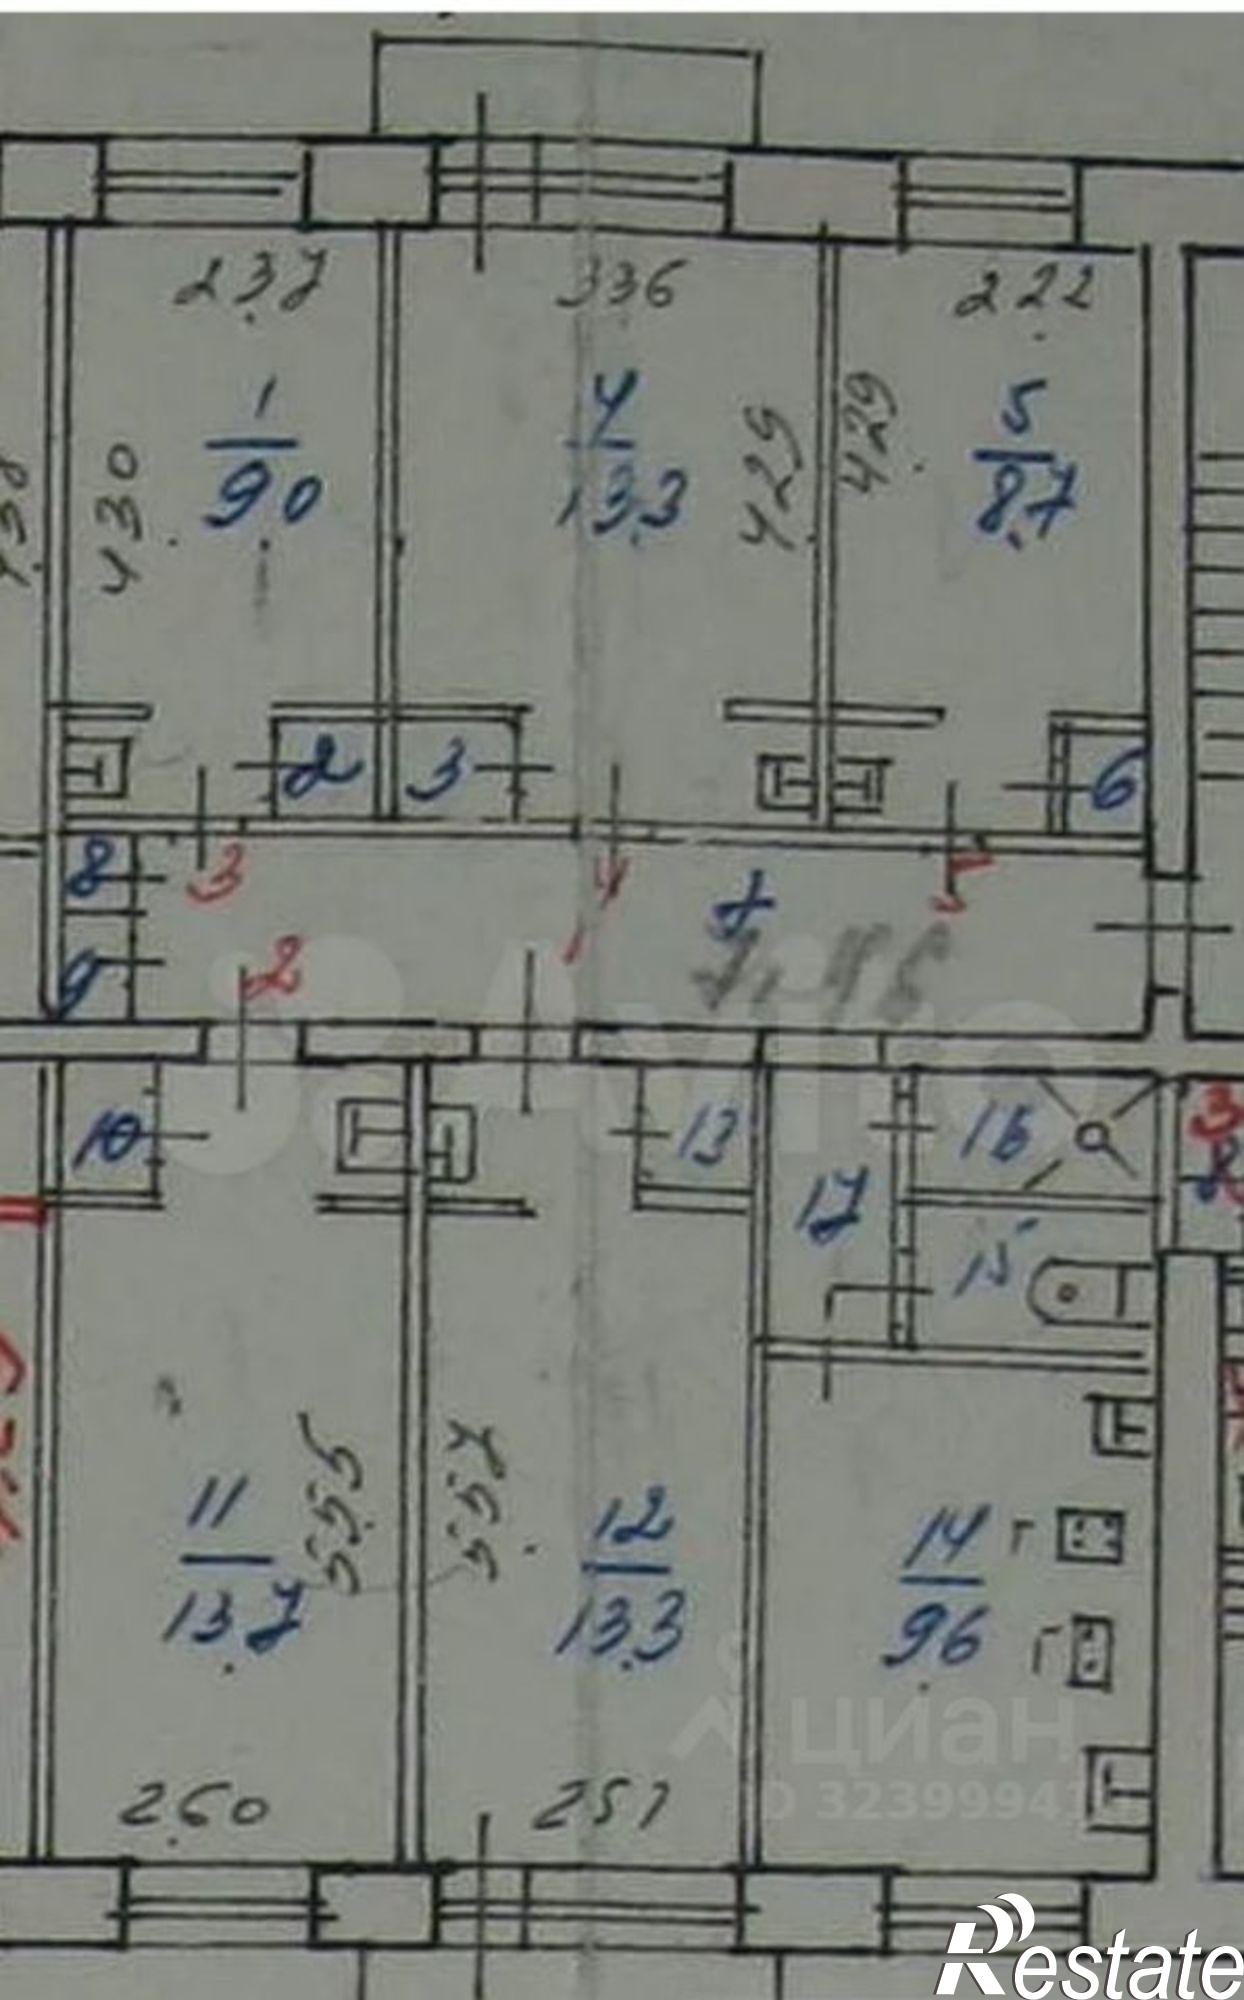 2.37
336
222
1
9.0
4.30
4
13.3
4.29
4.29
5
8.7
2
3
6
8
3
4
5
7
9
2
1
10
13
16
3
8
17
15
11
13.7
5.55
5.57
12
13.3
14
9.6
Г
Г
2.60
257
Avito
циан
ID 3239994
Restate